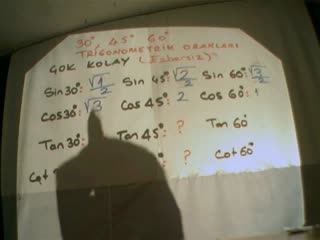 30°, 45° 60°
TRİGONOMETRİK ORANLARI
ÇOK KOLAY (Ezbersiz)
Sin30°: √1/2 Sin 45°: √2/2 Sin 60°: √3/2
Cos30°: √3 Cos 45°: 2 Cos 60°: 1
Tan 30° Tan 45°: ? Tan 60°
Cot ? Cot 60°